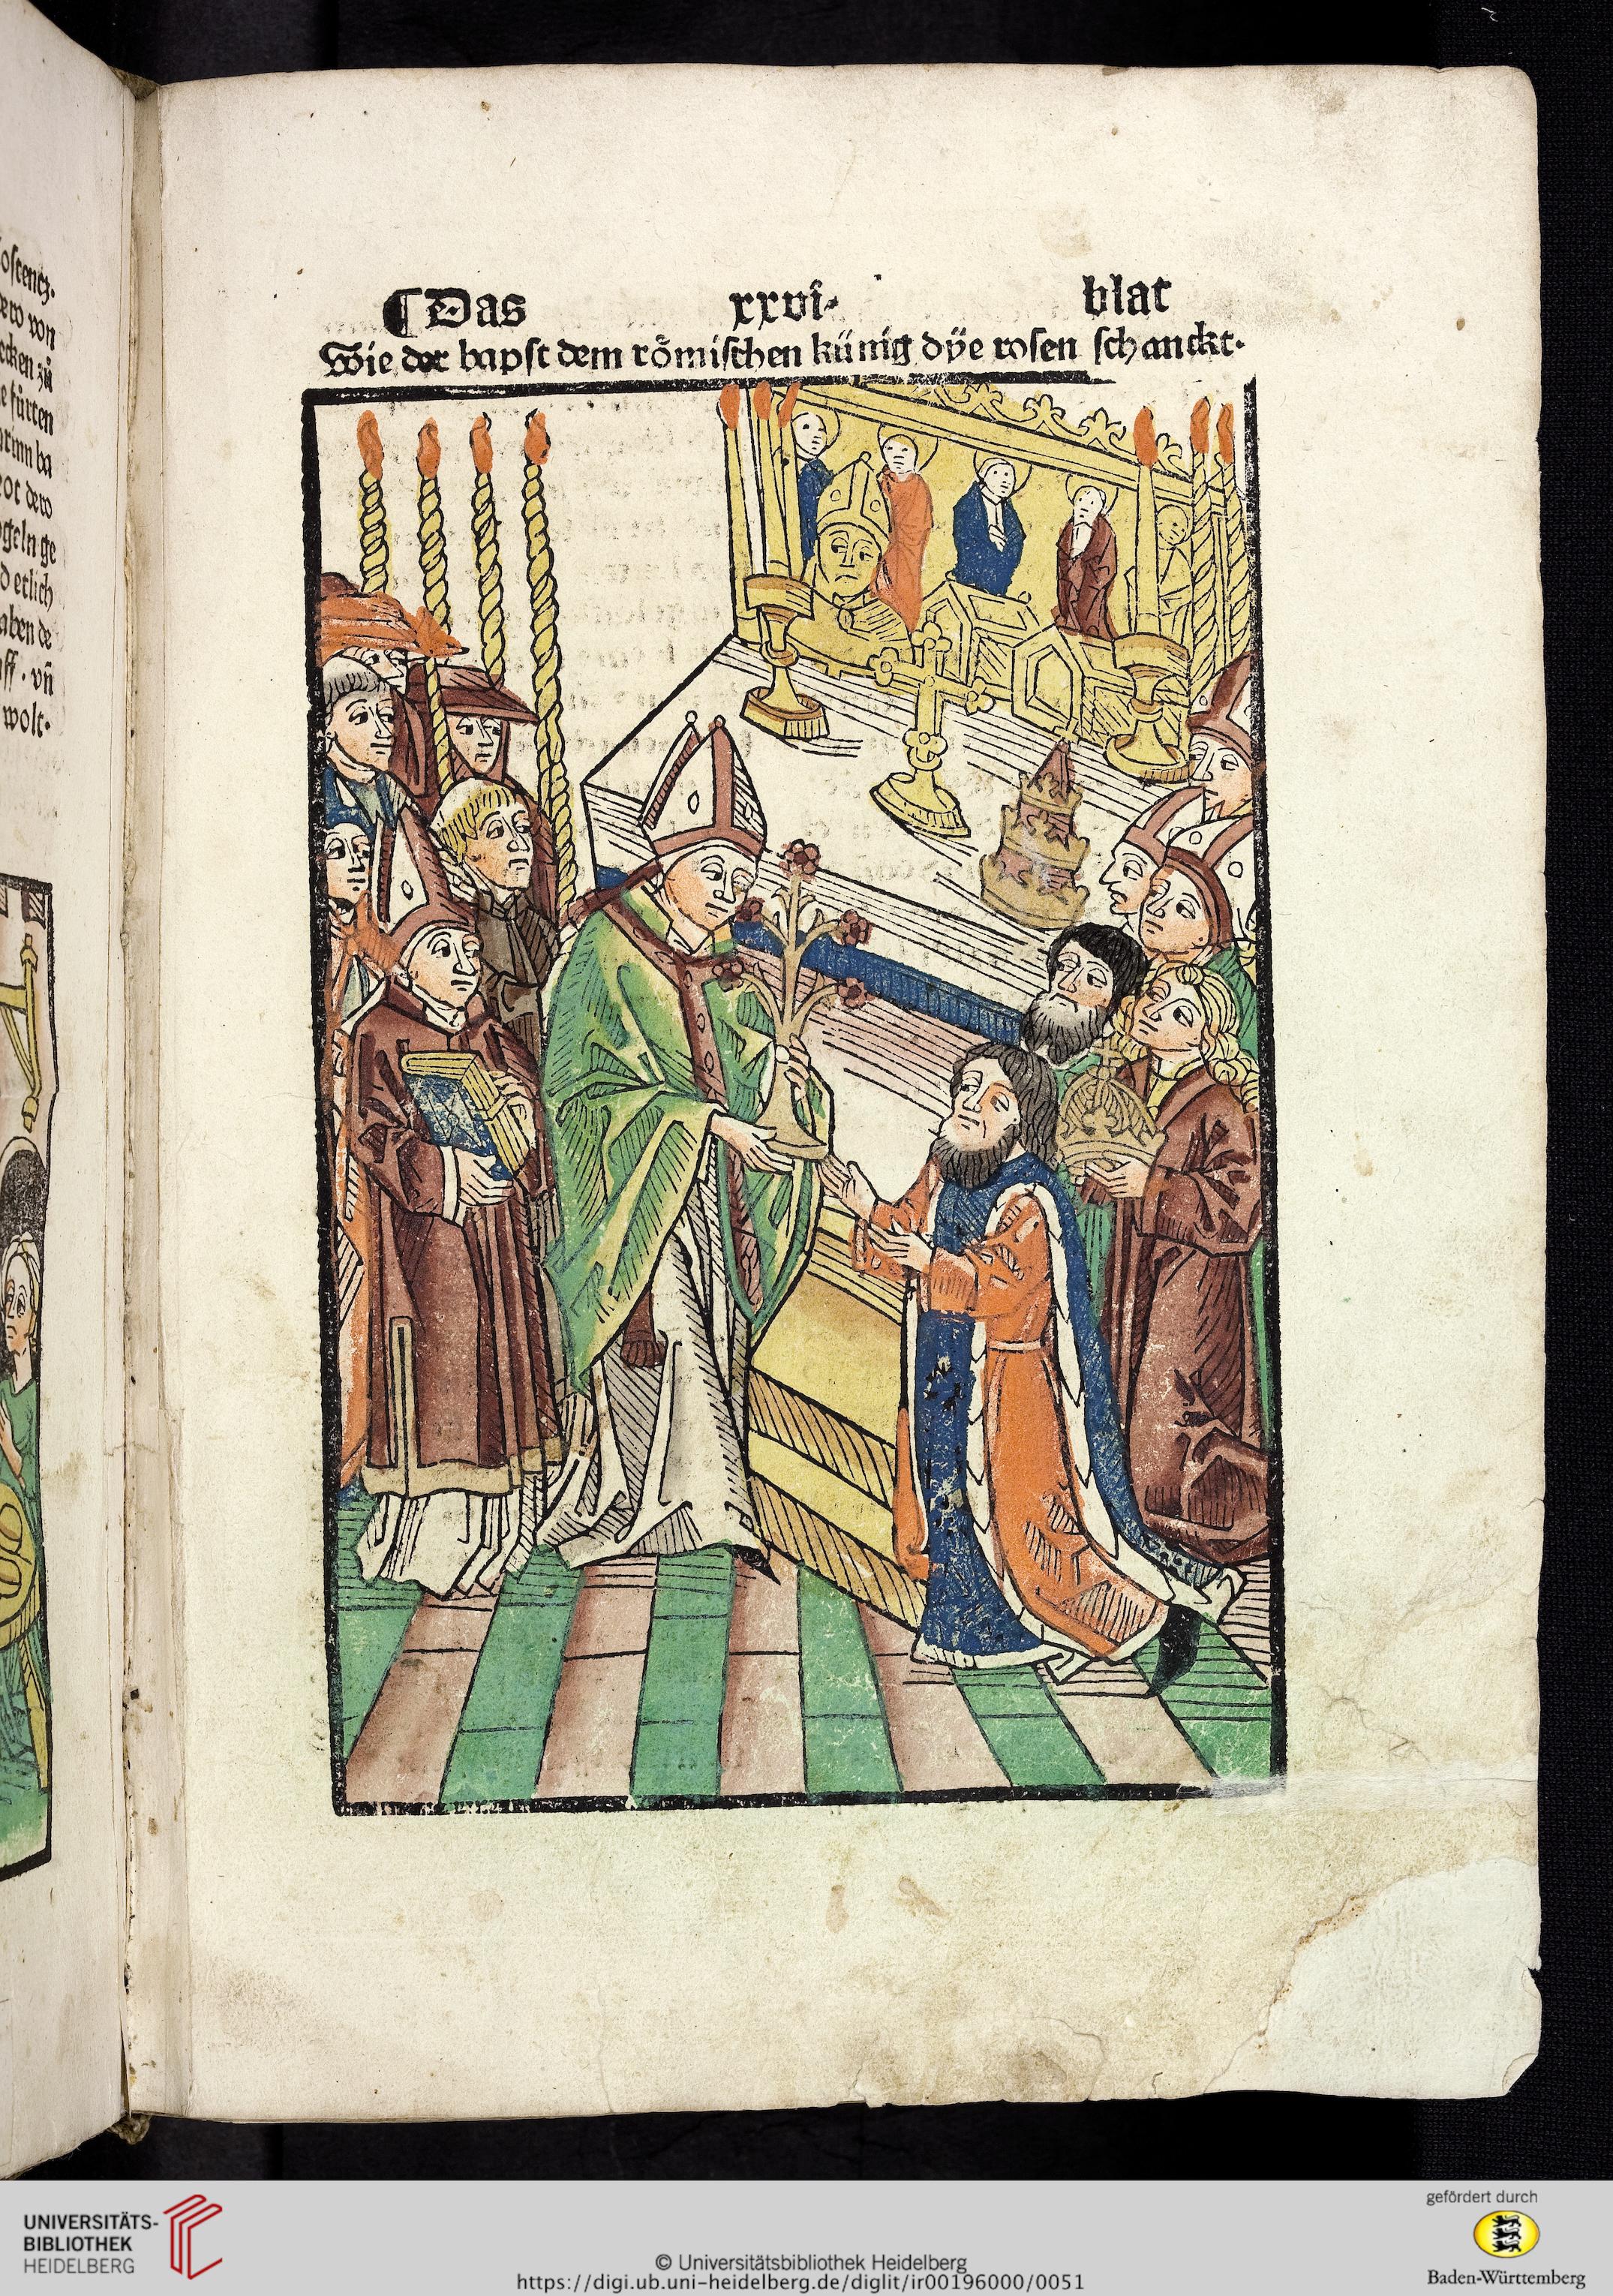 ostentz.
dero von
ecken zů
e fürten
ot dero
geln ge
d etlich
aben de
ff . vñ
wolt.
¶ Das xxvi. blat
Wie der bapst dem römischen künig dÿe rosen schanckt.
UNIVERSITÄTS-
BIBLIOTHEK
HEIDELBERG
© Universitätsbibliothek Heidelberg
https://digi.ub.uni-heidelberg.de/diglit/ir00196000/0051
gefördert durch
Baden-Württemberg